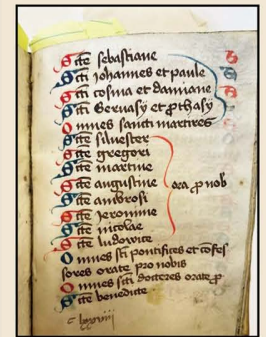 Scē sebastiane
Scī Johannes et paule
Scī cosma et damiane
Scī Gervasy et ꝓthasy
Omnes sancti martires
Scē silvester
Scē gregori
Scē martine
Scē augustine ora ꝓ nob
Scē ambrosi
Scē Jeronime
Scē nicolae
Scē ludowice
Omnes scī pontifices et cōfes
sores orate pro nobis
Omnes scī doctores orate ꝓ
Scē benedicte